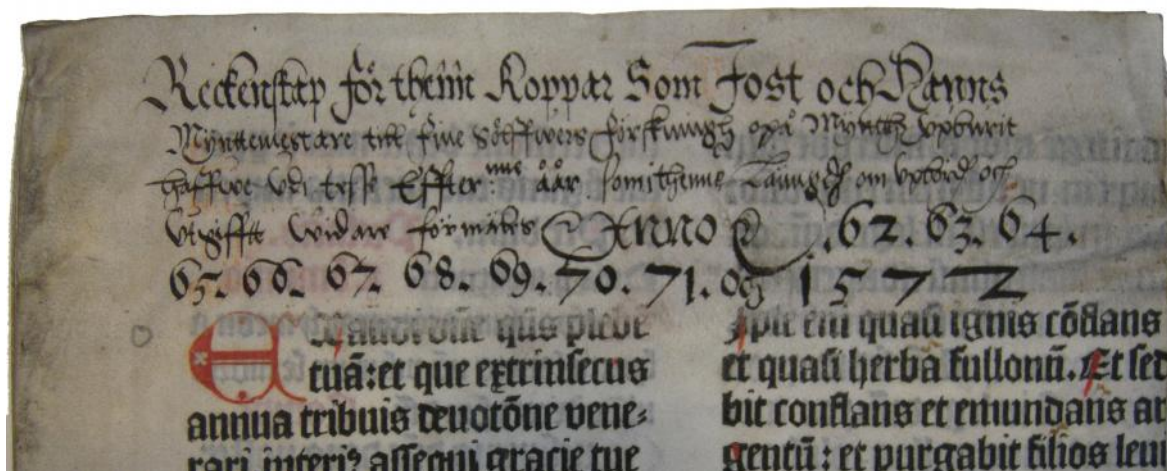 Reckenskap för them Koppar Som Jost och Hanns
Mÿnttemestare till sine opå Mÿntth Upburit
haffwe Udi tesse Effter:ᵐᵉ åår som thenne om upbörd och
Utgifftt widare förmäles Anno .62.63.64.
65.66.67.68.69.70.71. och 1572
qūs plebē
tuā:et que extrinsecus
annua tribuis deuotōne vene=
rari, interiꝰ assequi gracie tue
Ipse eni quasi ignis cōflans
et quasi herba fullonū. Et sed
bit conflans et emundans ar
gentū: et purgabit filios leui